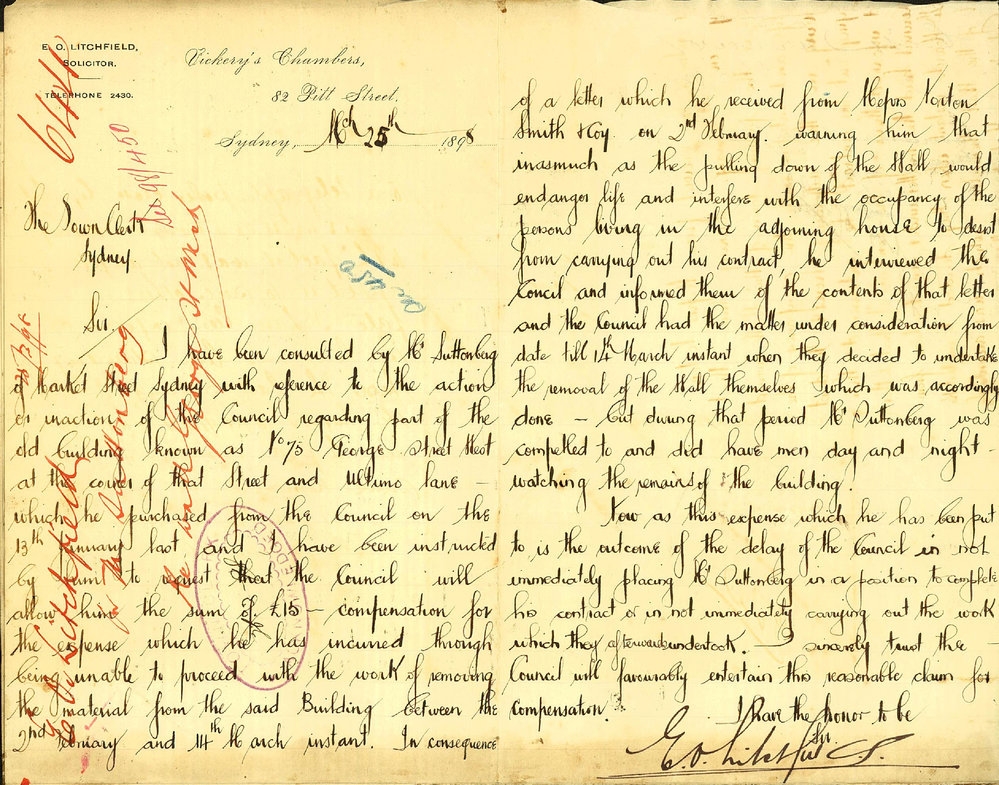 E. O. LITCHFIELD,
SOLICITOR.
TELEPHONE 2430.
Vickery's Chambers,
82 Pitt Street,
Sydney, Mch 25th 1898
644
98/1450
The Town Clerk
Sydney.
Sir,
I have been consulted by Mr Suttonberg
of Market Street Sydney with reference to the action
or inaction of the Council regarding part of the
old building known as No 75 George Street West
at the corner of that Street and Ultimo lane –
which he purchased from the Council on the
13th January last and have been instructed
by him to request that the Council will
allow him the sum of £15 – compensation for
the expense which he has incured through
being unable to proceed with the work of removing
the material from the said Building between the
2nd February and 14th March instant. In consequence
of a letter which he received from Messrs Norton
Smith & Coy. on 2nd February warning him that
inasmuch as the pulling down of the Wall would
endanger life and interfere with the occupancy of the
persons living in the adjoining house to desist
from carrying out his contract, he interviewed the
Concil and informed them of the contents of that letter
and the Council had the matter under consideration from
date till 14th March instant when they decided to undertake
the removal of the Wall themselves which was accordingly
done – but during that period Mr Suttonberg was
compelled to and did have men day and night –
watching the remains of the building.
Now as this expense which he has been put
to is the outcome of the delay of the Council in not
immediately placing Mr Suttonberg in a position to complete
his contract or in not immediately carrying out the work
which they afterwards undertook. – I sincerely trust the –
Council will favourably entertain this reasonable claim for
compensation.
I have the honor to be
Sir
E. O. Litchfield
E O Litchfield
for Mr Suttonberg
re wall George St West